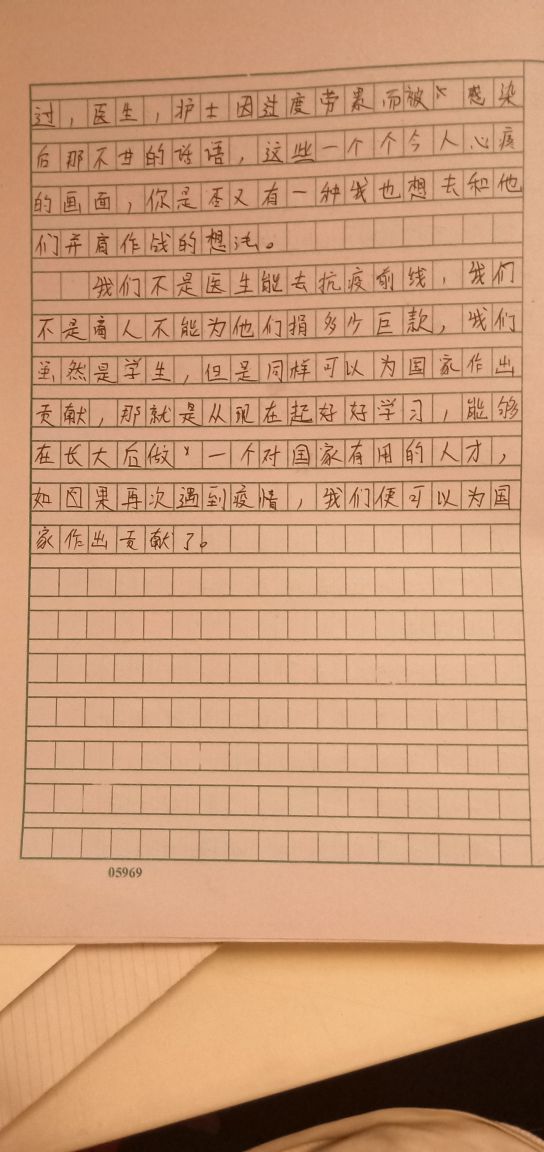 过，医生，护士因过度劳累而被感染
后那不甘的话语，这些一个个令人心疼
的画面，你是否又有一种我也想去和他
们并肩作战的想法。
我们不是医生能去抗疫前线，我们
不是商人不能为他们捐多少巨款，我们
虽然是学生，但是同样可以为国家作出
贡献，那就是从现在起好好学习，能够
在长大后做一个对国家有用的人才，
如因果再次遇到疫情，我们便可以为国
家作出贡献了。
05969